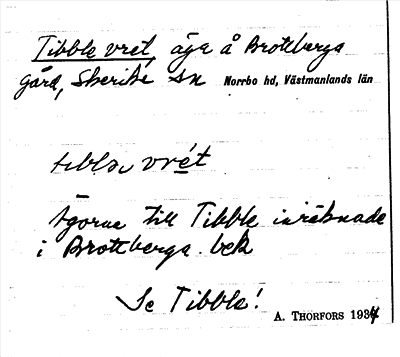 Tibble vret, äga å Brottberga
gård, Skerike sn Norrbo hd, Västmanlands län
tibbla vrét
Ägorna till Tibble inräknade
i Brottberga. bek
Se Tibble!
A. THORFORS 1934